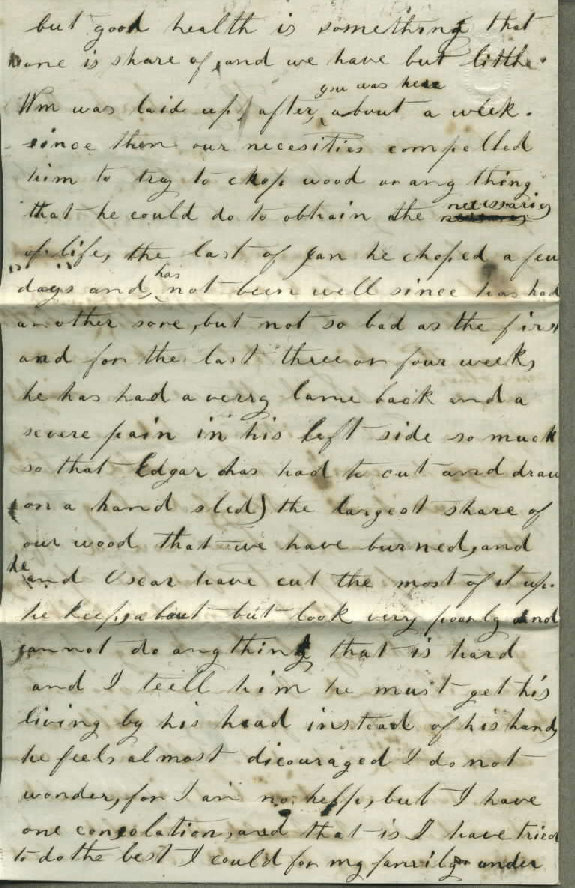 but good health is something that
one is share of, and we have but little.
you was here
Wm was laid up, after about a week.
since then our necesities compelled
him to try to chop wood or any thing
that he could do to obtain the necessaries
of life, the last of Jan he choped a few
days and has not been well since has had
another sore, but not so bad as the first
and for the last three or four weeks,
he has had a verry lame back and a
severe pain in his left side so much
so that Edgar has had to cut and draw
(on a hand sled) the largest share of
our wood that we have burned, and
he and Oscar have cut the most of it up.
he keeps about but look very poorly and
cannot do anything that is hard
and I teell him he must get his
living by his head instead of his hands
he feels almost dicouraged I do not
wonder, for I am no help, but I have
one consolation, and that is I have tried
to do the best I could for my family under